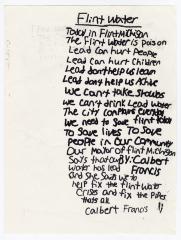 Flint Water
Today in Flint Michigan
The Flint Water is poison
Lead Can hurt People
Lead can hurt Children
Lead dont help us lean
Lead dont help us Achive
We can't take showes
we can't drink Lead water
The city complians Everyday
We need to save Flint today
To save lives To save
people in our Community
Our Mayor of Flint Michigan
Says that our
water has lead
And she says we to
help fix the flint Water
Crises and fix the Pipes
thats all
By: Calbert
Francis
Calbert Francis